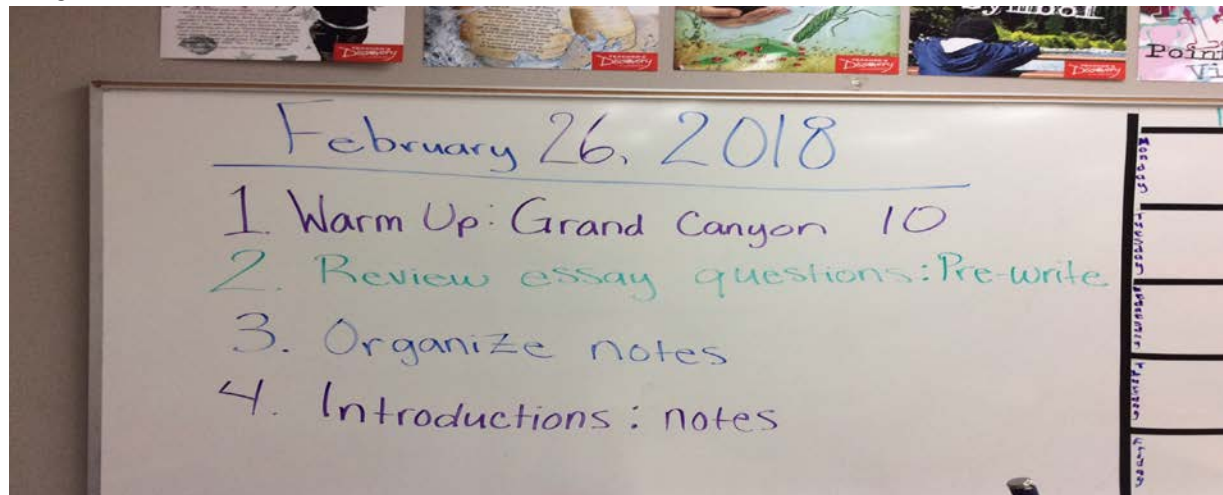 TEACHER'S
Discovery
TEACHER'S
Discovery
TEACHER'S
Discovery
Symbol
TEACHER'S
Discovery
Point
Vi
February 26, 2018
1. Warm Up: Grand Canyon 10
2. Review essay questions: Pre-write
3. Organize notes
4. Introductions: notes
Monday
Tuesday
Wednesday
Thursday
Friday